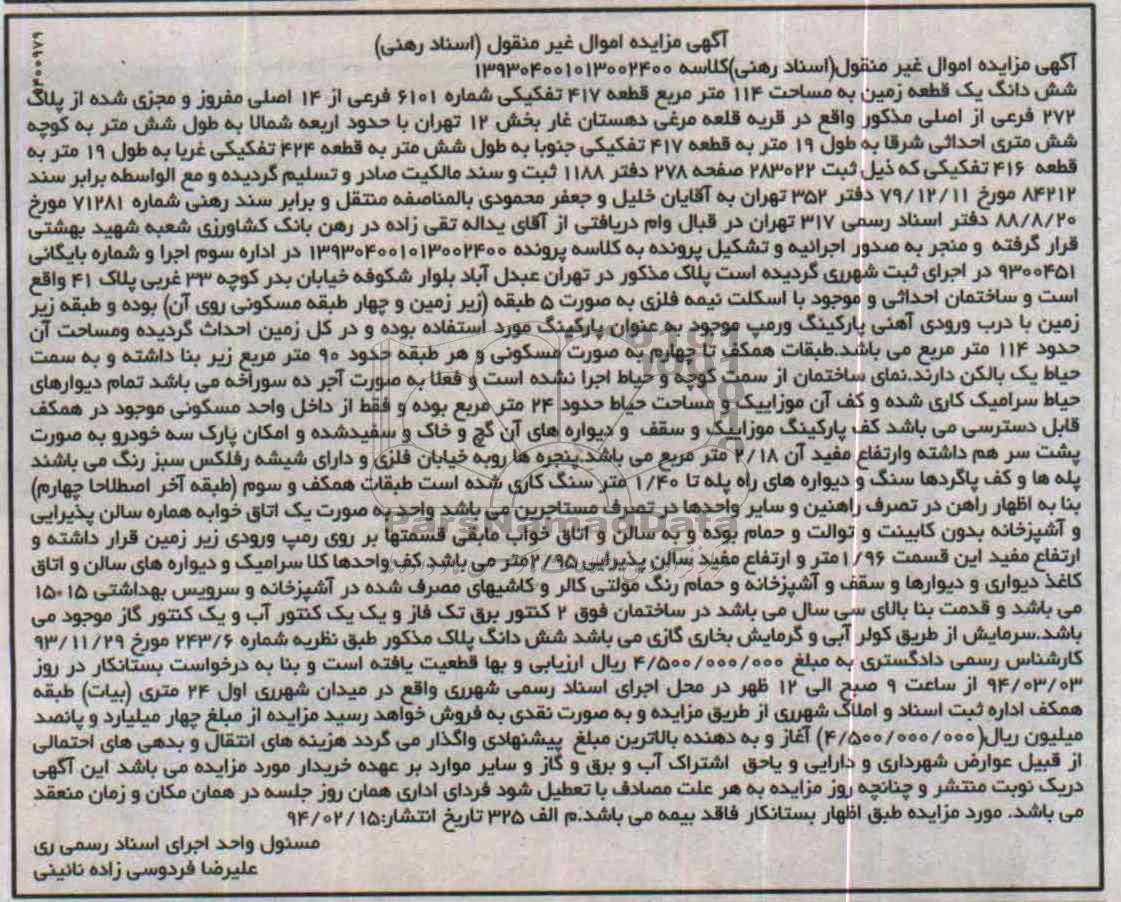 آگهی مزایده اموال غیر منقول (اسناد رهنی)
آگهی مزایده اموال غیر منقول(اسناد رهنی)کلاسه ۱۳۹۳۰۴۰۰۱۰۱۳۰۰۲۴۰۰
شش دانگ یک قطعه زمین به مساحت ۱۱۴ متر مربع قطعه ۴۱۷ تفکیکی شماره ۶۱۰۱ فرعی از ۱۴ اصلی مفروز و مجزی شده از پلاک
۲۷۲ فرعی از اصلی مذکور واقع در قریه قلعه مرغی دهستان غار بخش ۱۲ تهران با حدود اربعه شمالا به طول شش متر به کوچه
شش متری احداثی شرقا به طول ۱۹ متر به قطعه ۴۱۷ تفکیکی جنوبا به طول شش متر به قطعه ۴۲۴ تفکیکی غربا به طول ۱۹ متر به
قطعه ۴۱۶ تفکیکی که ذیل ثبت ۲۸۳۰۲۲ صفحه ۲۷۸ دفتر ۱۱۸۸ ثبت و سند مالکیت صادر و تسلیم گردیده و مع الواسطه برابر سند
۸۴۲۱۲ مورخ ۷۹/۱۲/۱۱ دفتر ۳۵۲ تهران به آقایان خلیل و جعفر محمودی بالمناصفه منتقل و برابر سند رهنی شماره ۷۱۲۸۱ مورخ
۸۸/۸/۲۰ دفتر اسناد رسمی ۳۱۷ تهران در قبال وام دریافتی از آقای یداله تقی زاده در رهن بانک کشاورزی شعبه شهید بهشتی
قرار گرفته و منجر به صدور اجرائیه و تشکیل پرونده به کلاسه پرونده ۱۳۹۳۰۴۰۰۱۰۱۳۰۰۲۴۰۰ در اداره سوم اجرا و شماره بایگانی
۹۳۰۰۴۵۱ در اجرای ثبت شهرری گردیده است پلاک مذکور در تهران عبدل آباد بلوار شکوفه خیابان بدر کوچه ۳۳ غربی پلاک ۴۱ واقع
است و ساختمان احداثی و موجود با اسکلت نیمه فلزی به صورت ۵ طبقه (زیر زمین و چهار طبقه مسکونی روی آن) بوده و طبقه زیر
زمین با درب ورودی آهنی پارکینگ ورمپ موجود به عنوان پارکینگ مورد استفاده بوده و در کل زمین احداث گردیده ومساحت آن
حدود ۱۱۴ متر مربع می باشد.طبقات همکف تا چهارم به صورت مسکونی و هر طبقه حدود ۹۰ متر مربع زیر بنا داشته و به سمت
حیاط یک بالکن دارند.نمای ساختمان از سمت کوچه و حیاط اجرا نشده است و فعلا به صورت آجر ده سوراخه می باشد تمام دیوارهای
حیاط سرامیک کاری شده و کف آن موزاییک و مساحت حیاط حدود ۲۴ متر مربع بوده و فقط از داخل واحد مسکونی موجود در همکف
قابل دسترسی می باشد کف پارکینگ موزائیک و سقف و دیواره های آن گچ و خاک و سفیدشده و امکان پارک سه خودرو به صورت
پشت سر هم داشته وارتفاع مفید آن ۲/۱۸ متر مربع می باشد.پنجره ها روبه خیابان فلزی و دارای شیشه رفلکس سبز رنگ می باشند
پله ها و کف پاگردها سنگ و دیواره های راه پله تا ۱/۴۰ متر سنگ کاری شده است طبقات همکف و سوم (طبقه آخر اصطلاحا چهارم)
بنا به اظهار راهن در تصرف راهنین و سایر واحدها در تصرف مستاجرین می باشد واحد به صورت یک اتاق خوابه هماره سالن پذیرایی
و آشپزخانه بدون کابینت و توالت و حمام بوده و به سالن و اتاق خواب مابقی قسمتها بر روی رمپ ورودی زیر زمین قرار داشته و
ارتفاع مفید این قسمت ۱/۹۶متر و ارتفاع مفید سالن پذیرایی ۲/۹۵متر می باشد کف واحدها کلا سرامیک و دیواره های سالن و اتاق
کاغذ دیواری و دیوارها و سقف و آشپزخانه و حمام رنگ مولتی کالر و کاشیهای مصرف شده در آشپزخانه و سرویس بهداشتی ۱۵*۱۵
می باشد و قدمت بنا بالای سی سال می باشد در ساختمان فوق ۲ کنتور برق تک فاز و یک یک کنتور آب و یک کنتور گاز موجود می
باشد.سرمایش از طریق کولر آبی و گرمایش بخاری گازی می باشد شش دانگ پلاک مذکور طبق نظریه شماره ۲۴۳/۶ مورخ ۹۳/۱۱/۲۹
کارشناس رسمی دادگستری به مبلغ ۴/۵۰۰/۰۰۰/۰۰۰ ریال ارزیابی و بها قطعیت یافته است و بنا به درخواست بستانکار در روز
۹۴/۰۳/۰۳ از ساعت ۹ صبح الی ۱۲ ظهر در محل اجرای اسناد رسمی شهرری واقع در میدان شهرری اول ۲۴ متری (بیات) طبقه
همکف اداره ثبت اسناد و املاک شهرری از طریق مزایده و به صورت نقدی به فروش خواهد رسید مزایده از مبلغ چهار میلیارد و پانصد
میلیون ریال(۴/۵۰۰/۰۰۰/۰۰۰) آغاز و به دهنده بالاترین مبلغ پیشنهادی واگذار می گردد هزینه های انتقال و بدهی های احتمالی
از قبیل عوارض شهرداری و دارایی و یاحق اشتراک آب و برق و گاز و سایر موارد بر عهده خریدار مورد مزایده می باشد این آگهی
دریک نوبت منتشر و چنانچه روز مزایده به هر علت مصادف با تعطیل شود فردای اداری همان روز جلسه در همان مکان و زمان منعقد
می باشد. مورد مزایده طبق اظهار بستانکار فاقد بیمه می باشد.م الف ۳۲۵ تاریخ انتشار:۹۴/۰۲/۱۵
مسئول واحد اجرای اسناد رسمی ری
علیرضا فردوسی زاده نائینی
۹۴۰۰۹۷۹
ParsNamadData